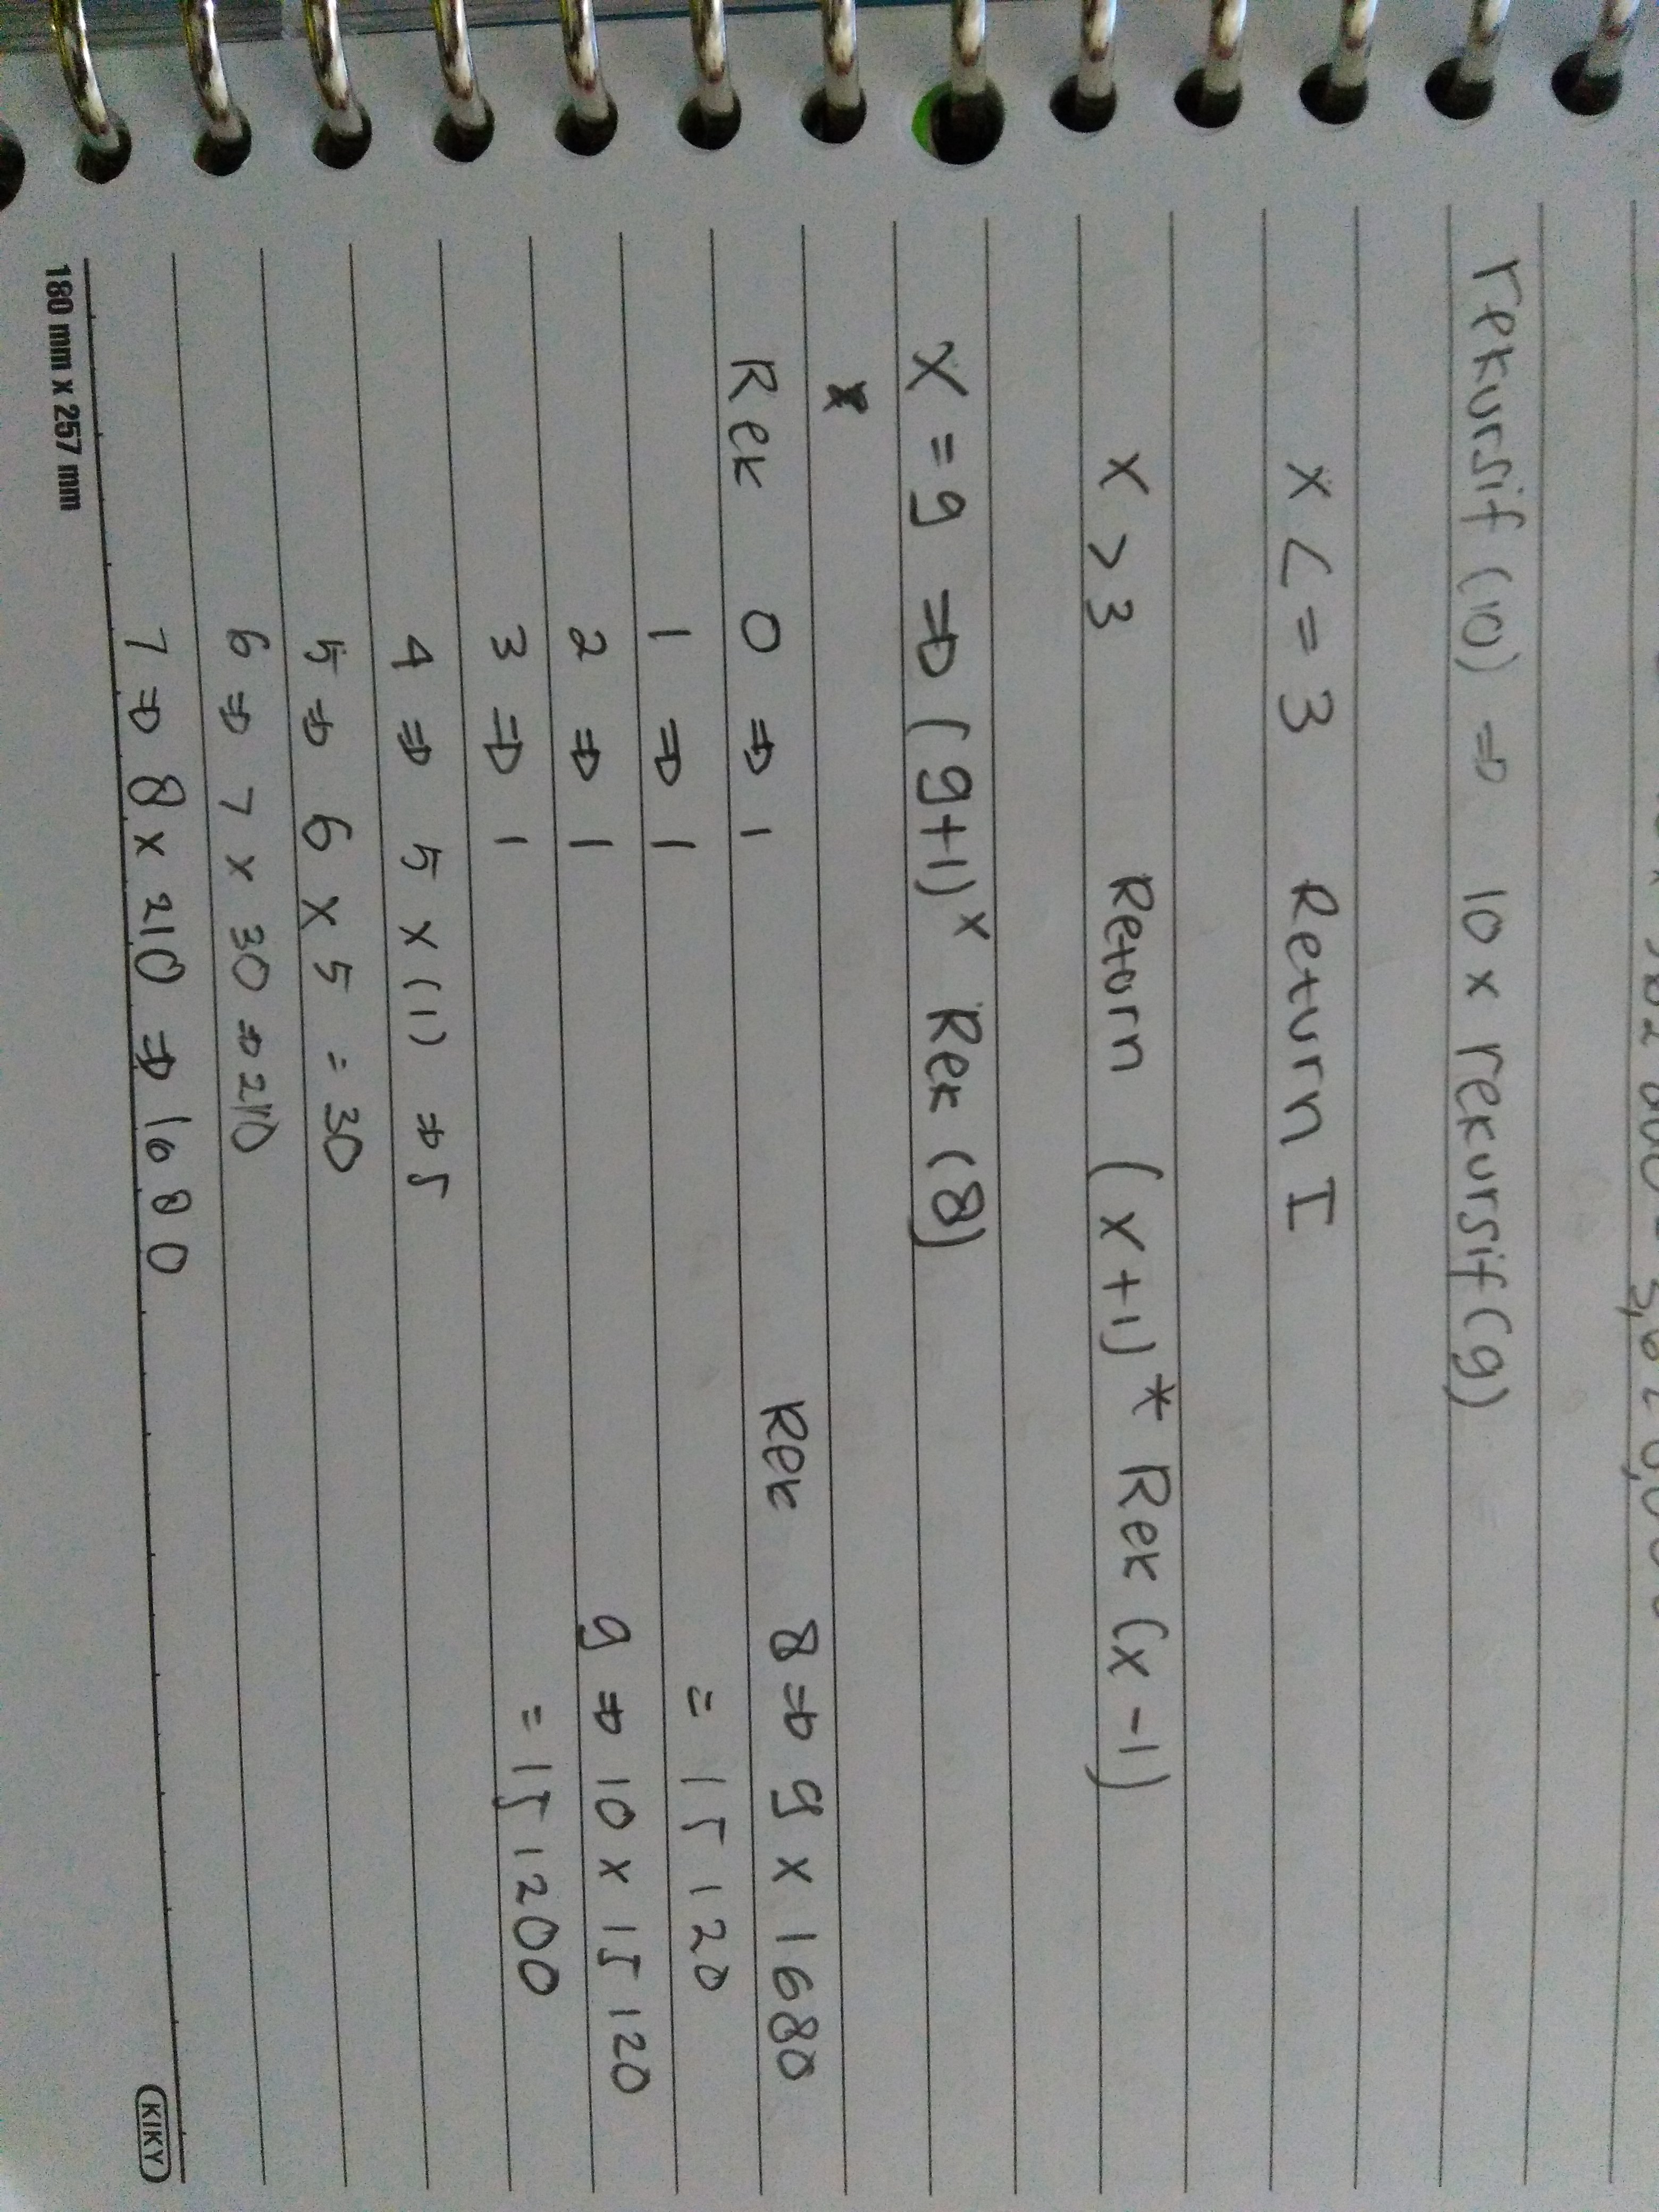 rekursif (10) => 10 x rekursif (9)
x <= 3 Return 1
x > 3 Return (x+1) * Rek (x-1)
x = 9 => (9+1) x Rek (8)
Rek 0 => 1
1 => 1
2 => 1
3 => 1
4 => 5 x (1) => 5
5 => 6 x 5 = 30
6 => 7 x 30 => 210
7 => 8 x 210 => 1680
Rek 8 => 9 x 1680
= 15 120
9 => 10 x 15 120
= 15 1200
180 mm x 257 mm
KIKY